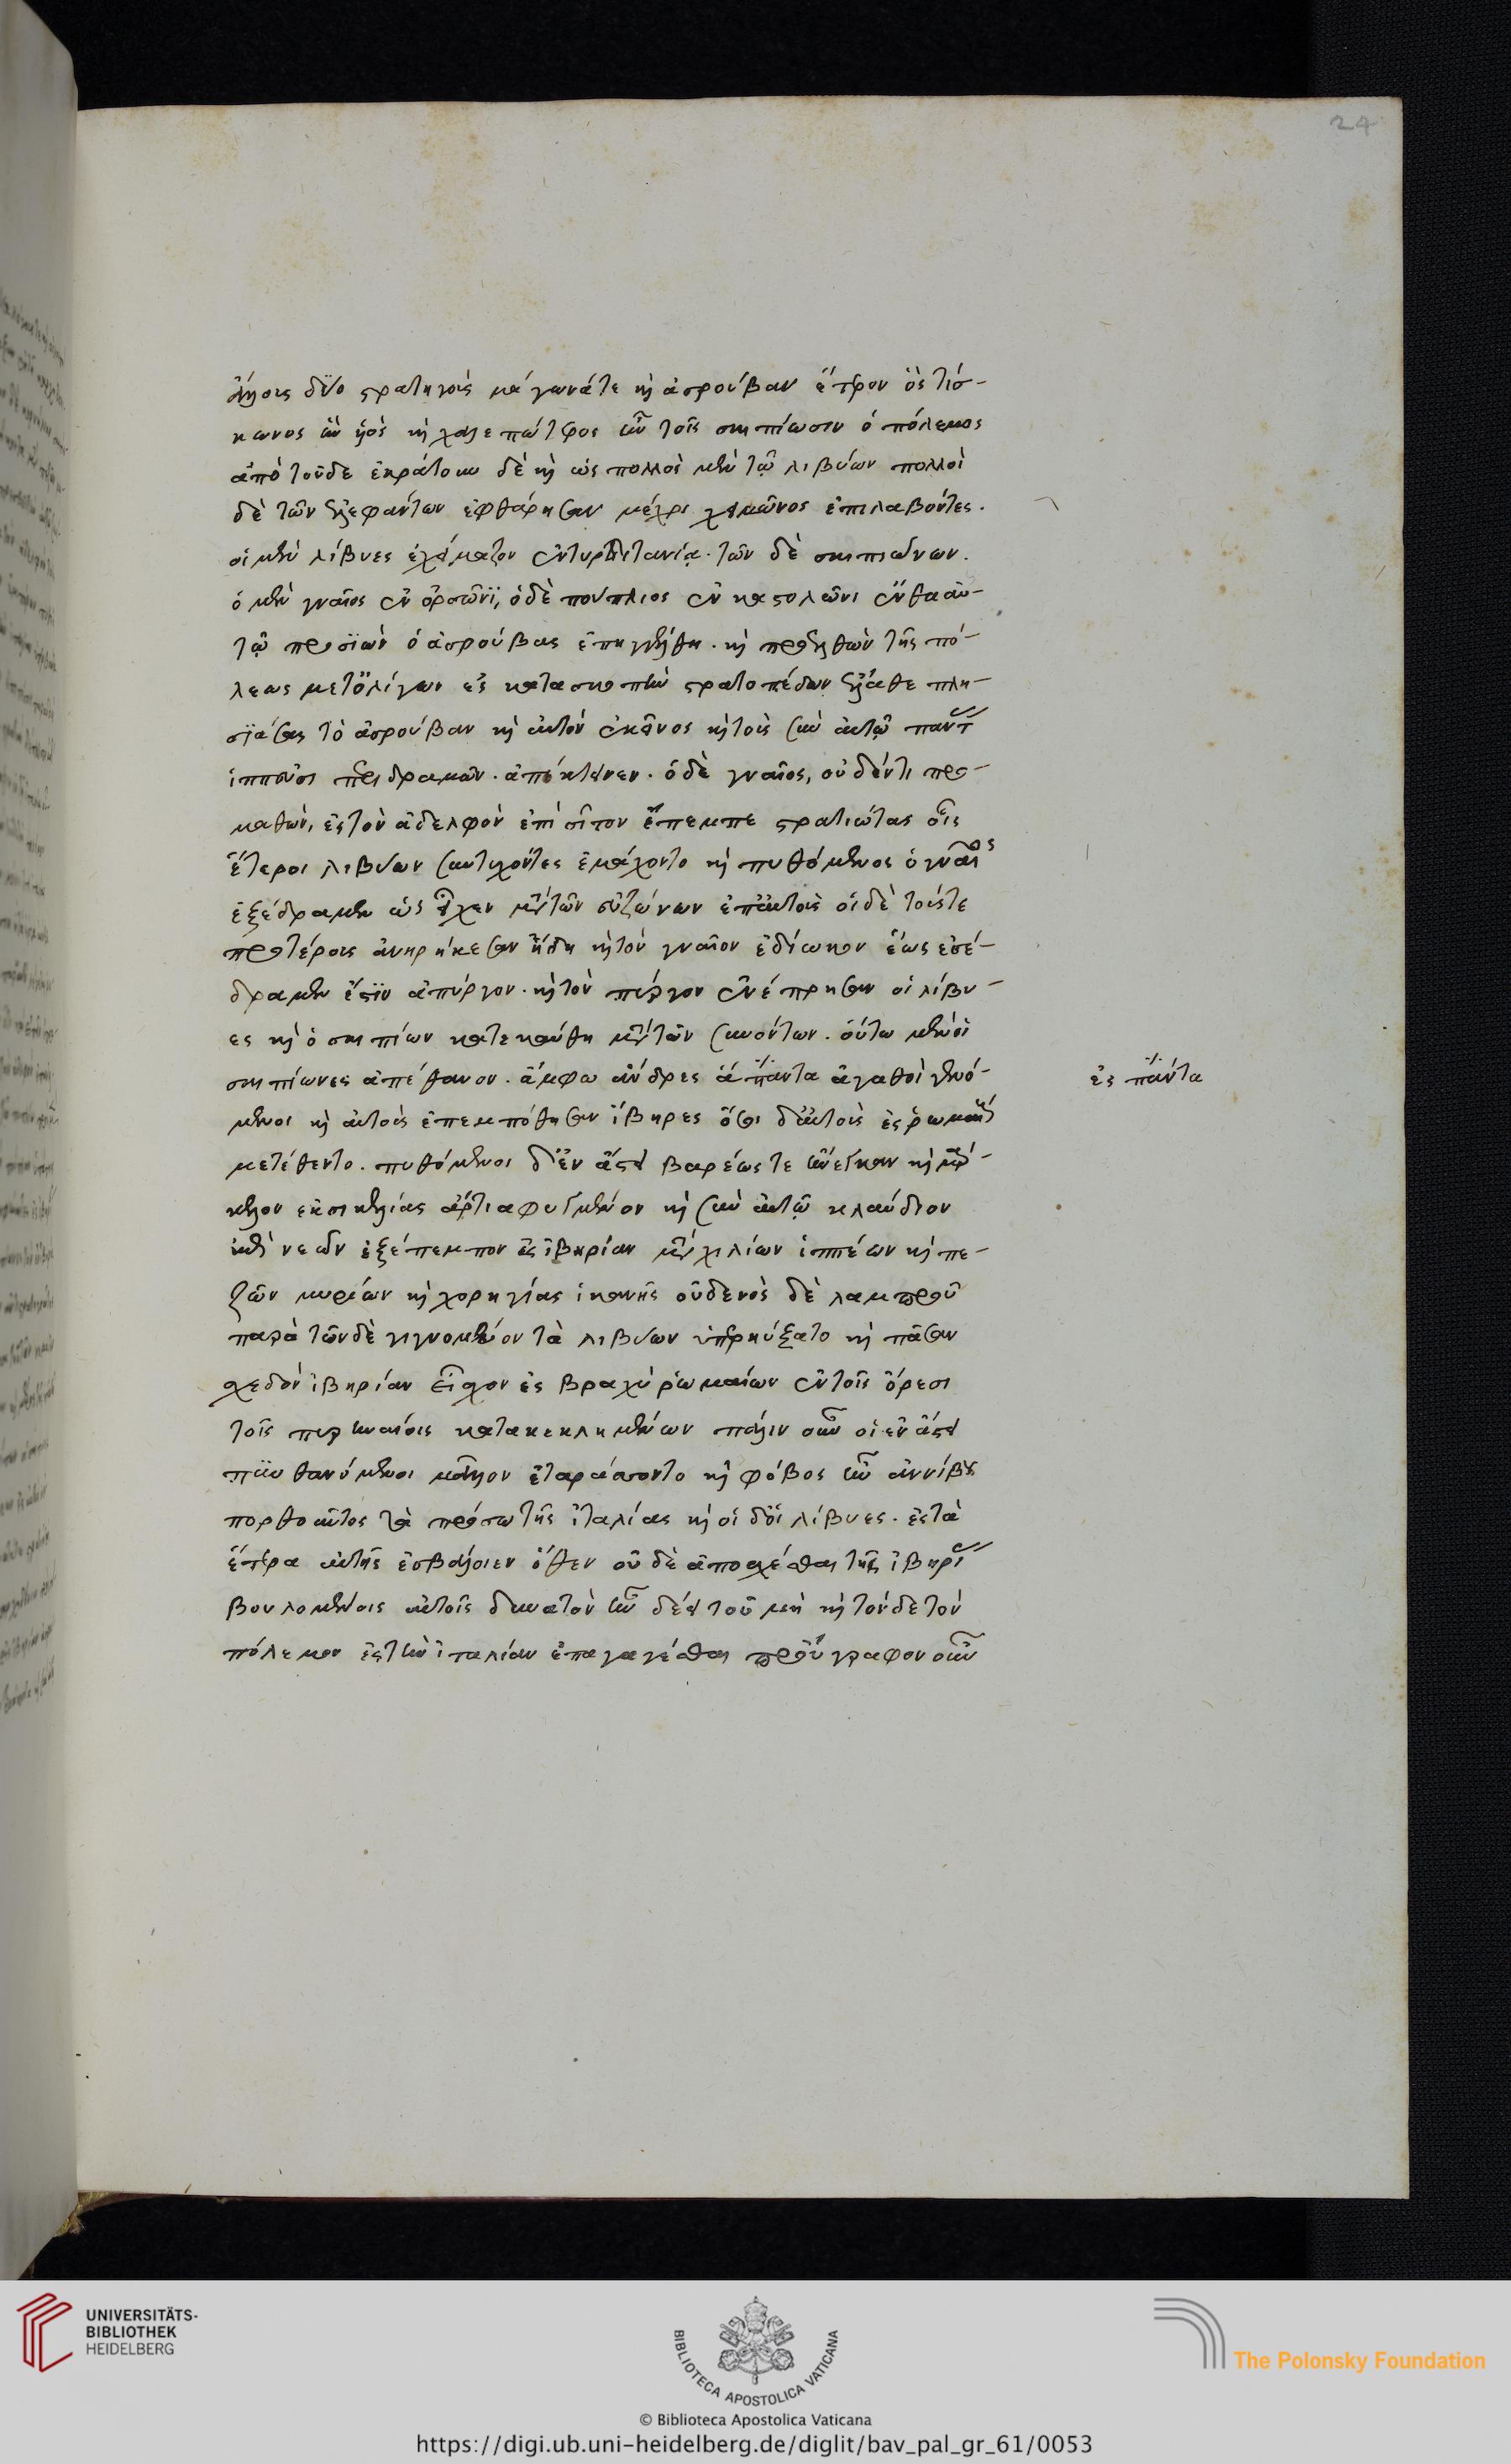 ἄλλοις δύο στρατηγοῖς μάγωνάτε καὶ ἀσρούβαν ἕτερον ὃς γίσ-
κωνος ἦν υἱὸς καὶ χαλεπώτερος ἦν τοῖς σκιπίωσιν ὁ πόλεμος
ἀπὸ τοῦδε ἐκράτουν δὲ καὶ ὡς πολλοὶ μὲν τῶν λιβύων πολλοὶ
δὲ τῶν ἐλεφάντων ἐφθάρησαν μέχρι χειμῶνος ἐπιλαβόντες.
οἱ μὲν λίβυες ἐχείμαζον ἐν τυρδιτανία. τῶν δὲ σκιπιώνων.
ὁ μὲν γναῖος ἐν ὀρσῶνϊ, ὁ δὲ πούπλιος ἐν καστολῶνι ἔνθα αὐ-
τῷ προσϊὼν ὁ ἀσρούβας ἐπηγγέλθη. καὶ προελθὼν τῆς πό-
λεως μετ' ὀλίγων ἐς κατασκοπὴν στρατοπέδων ἔλαθε πλη-
σϊάσας τὸ ἀσρούβαν καὶ αὐτὸν ἐκεῖνος καὶ τοὺς σὺν αὐτῷ πάντας
ἱππεῦσι περιδραμὼν. ἀπέκτεινεν. ὁ δὲ γναῖος, οὐδέν τι προ-
μαθὼν, ἐς τὸν ἀδελφὸν ἐπὶ σῖτον ἔπεμπε στρατιώτας οἷς
ἕτεροι λιβύων συντυχόντες ἐμάχοντο καὶ πυθόμενος ὁ γναῖος
ἐξέδραμεν ὡς εἶχεν μετὰ τῶν εὐζώνων ἐπ' αὐτοὺς οἱ δὲ τούς τε
προτέροις ἀνηρήκεσαν ἤδη καὶ τὸν γναῖον ἐδίωκον ἕως ἐσέ-
δραμεν ἔς τϊν α πύργον. καὶ τὸν πύργον ἐνέπρησαν οἱ λίβυ-
ες καὶ ὁ σκιπίων κατεκαύθη μετὰ τῶν συνόντων. οὕτω μὲν οἱ
σκιπίωνες ἀπέθανον. ἄμφω ἄνδρες ἅπαντα ἀγαθοὶ γενό-
μενοι καὶ αὐτοὺς ἐπεμπόθησαν ἴβηρες ὅσοι δι' αὐτοὺς ἐς ῥωμαίους
μετέθεντο. πυθόμενοι δ' ἐν ἄστει βαρέως τε ἤνεγκαν καὶ μάρ-
κελλον ἐκ σικελίας ἄρτι ἀφιγμένον καὶ σὺν αὐτῷ κλαύδιον
ἐπὶ νεῶν ἐξέπεμπον ἐς ἰβηρίαν μετὰ χιλίων ἱππέων καὶ πε-
ζῶν μυρίων καὶ χορηγίας ἱκανῆς οὐδενὸς δὲ λαμπροῦ
παρὰ τῶνδὲ γιγνομένον τὰ λιβύων ὑπερηύξατο καὶ πᾶσαν
σχεδὸν ἰβηρίαν εἶχον ἐς βραχὺ ῥωμαίων ἐν τοῖς ὄρεσι
τοῖς πυρηναίοις κατακεκλημένων πάλιν οὖν οἱ ἐν ἄστει
πϋνθανόμενοι μᾶλλον ἐταράσσοντο καὶ φόβος ἦν ἀννίβου
πορθοῦντος τὰ πρόσω τῆς ἰταλίας καὶ οἱ δὲ οἱ λίβυες. ἐς τὰ
ἕτερα αὐτῆς ἐσβάλοιεν ὅθεν οὐδὲ ἀποσχέσθαι τῆς ἰβηρίας
βουλομένοις αὐτοῖς δυνατὸν ἦν δέει τοῦ μὴ καὶ τόνδε τὸν
πόλεμον ἐς τὴν ἰταλίαν ἐπαγαγέσθαι προύγραφον οὖν
ἐς πάντα
24
UNIVERSITÄTS-
BIBLIOTHEK
HEIDELBERG
BIBLIOTECA APOSTOLICA VATICANA
The Polonsky Foundation
© Biblioteca Apostolica Vaticana
https://digi.ub.uni-heidelberg.de/diglit/bav_pal_gr_61/0053